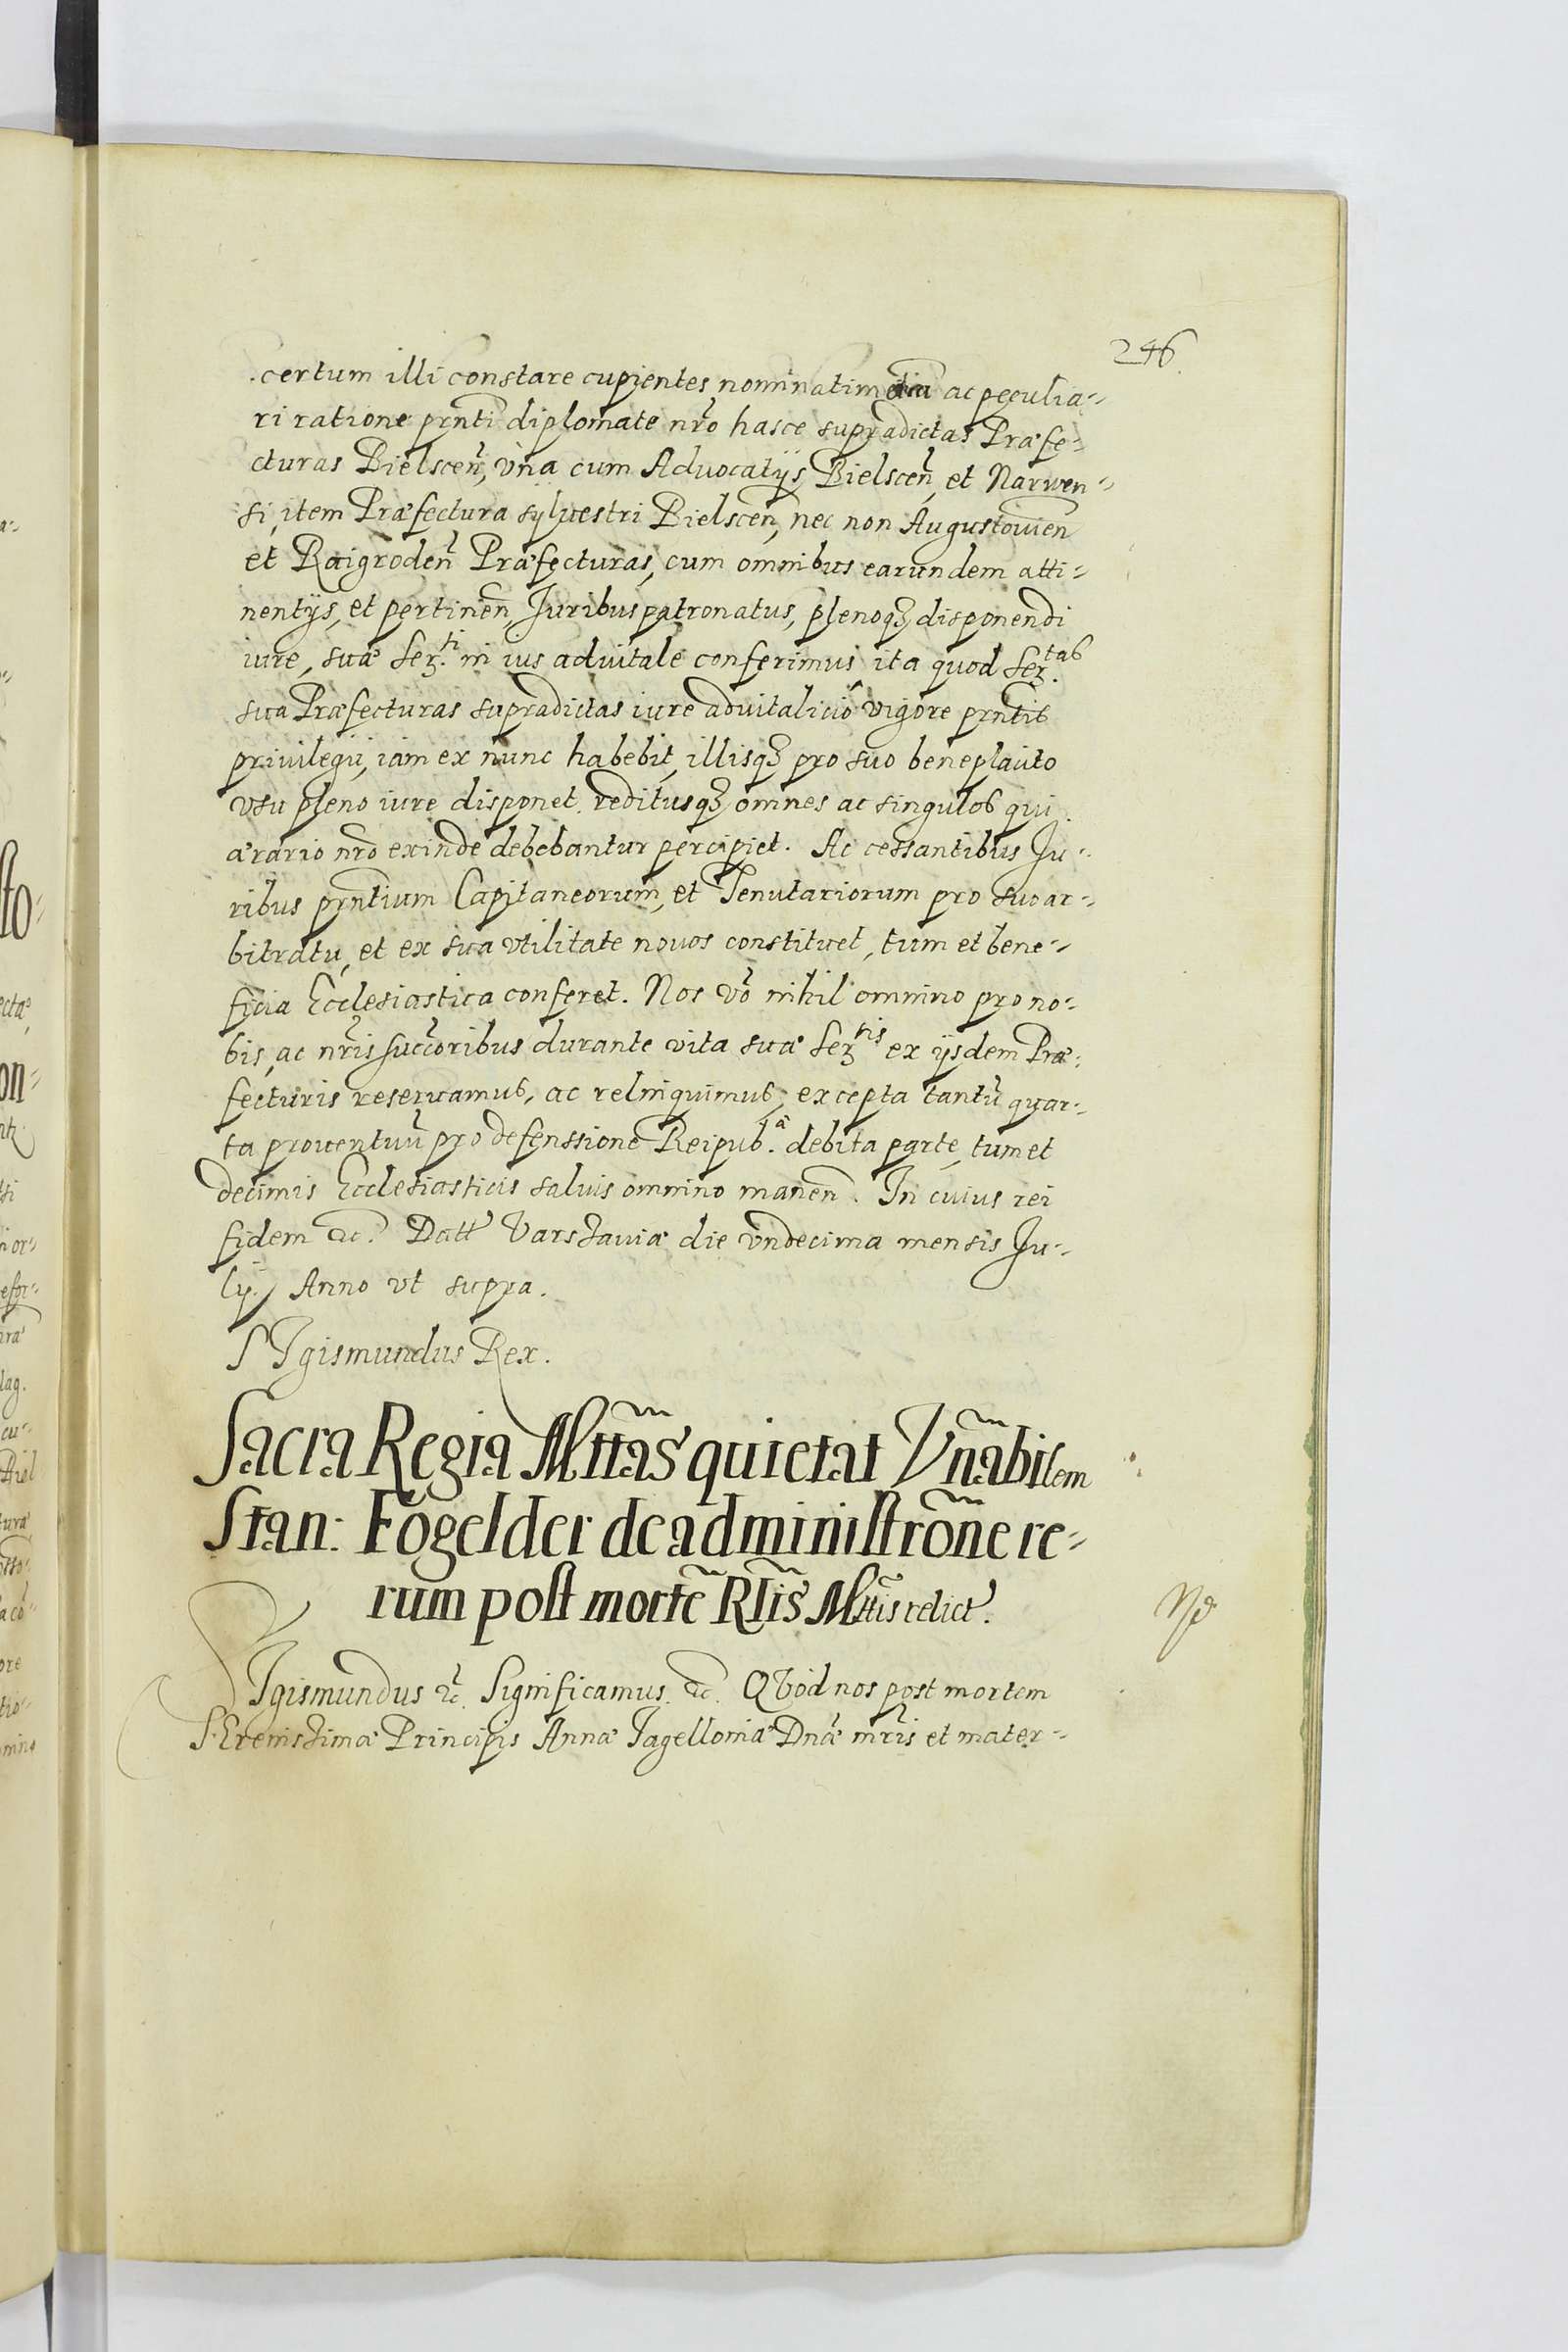 246.
certum illi constare cupientes nominatim etiã ac peculia-
ri ratione prnti diplomate nro hasce supradictas Præfe-
cturas Bielscen, vna cum Advocatijs Bielscen, et Narwen-
si, item Præfectura sylvestri Bielscen, nec non Augustovien
et Raigroden Præfecturas, cum omnibus earundem atti-
nentijs, et pertinen, Juribus patronatus, plenoqȝ disponendi
iure, suæ Serti in ius advitale conferimus ita quod Sertas
sua Præfecturas supradictas iure advitalicio vigore prntis
privilegij, iam ex nunc habebit, illisqȝ pro suo beneplacito
vsu pleno iure disponet. reditusqȝ omnes ac singulos qui
ærario nro exinde debebantur percipiet. Ac cessantibus Ju-
ribus prntium Capitaneorum, et Tenutariorum pro suo ar-
bitratu, et ex sua vtilitate novos constituet, tum et bene-
ficia Ecclesiastica conferet. Nos vo nihil omnino pro no-
bis, ac nris succoribus durante vita suæ Sertis ex ijsdem Præ-
fecturis reservamus, ac relinquimus, excepta tantũ quar-
ta proventuũ pro defenssione Reipub. debita parte, tum et
decimis Ecclesiasticis salvis omnino manen. In cuius rei
fidem etc. Datt Varssaviæ die vndecima mensis Ju-
lij Anno vt supra.
SIgismundus Rex.
Sacra Regia Mttas quietat Vnabilem
Stan: Fogelder de administrone re-
rum post morte RIis Mttis relict.
SIgismundus etc. Significamus. etc. QVod nos post mortem
SErenissimæ Principis Annæ Jagelloniæ Dnæ mris et mater-